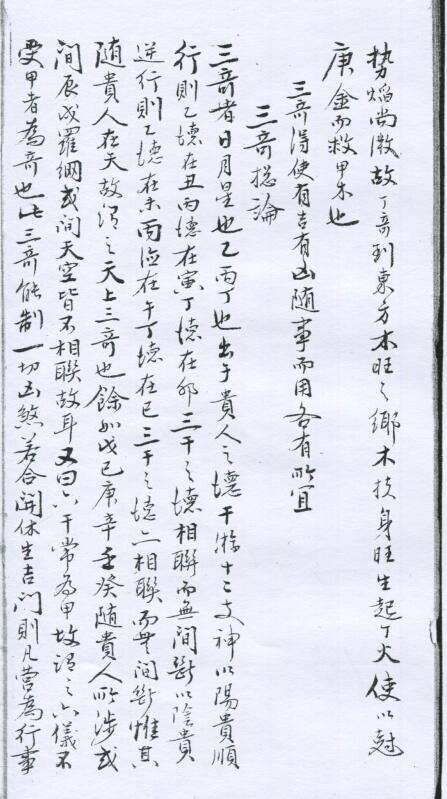 势焰尚微故丁竒到東方木旺之鄉木扶身旺生起丁火使以尅
庚金而救甲木也
三竒得使有吉有凶随事而用各有所宜
三竒総論
三竒者日月星也乙丙丁也出于貴人之德干游十二支神以陽貴順
行則乙德在丑丙德在寅丁德在卯三干之德相聯而無间斷以陰貴
逆行則乙德在未丙德在午丁德在巳三干之德亦相聯而無间斷惟其
随貴人在天故谓之天上三竒也餘如戊已庚辛壬癸随貴人所涉或
间辰戌羅網或间天空皆不相聯故耳又曰六干常為甲故谓之六儀不
受甲者為竒也此三竒能制一切凶煞若合開休生吉门則凡营為行事